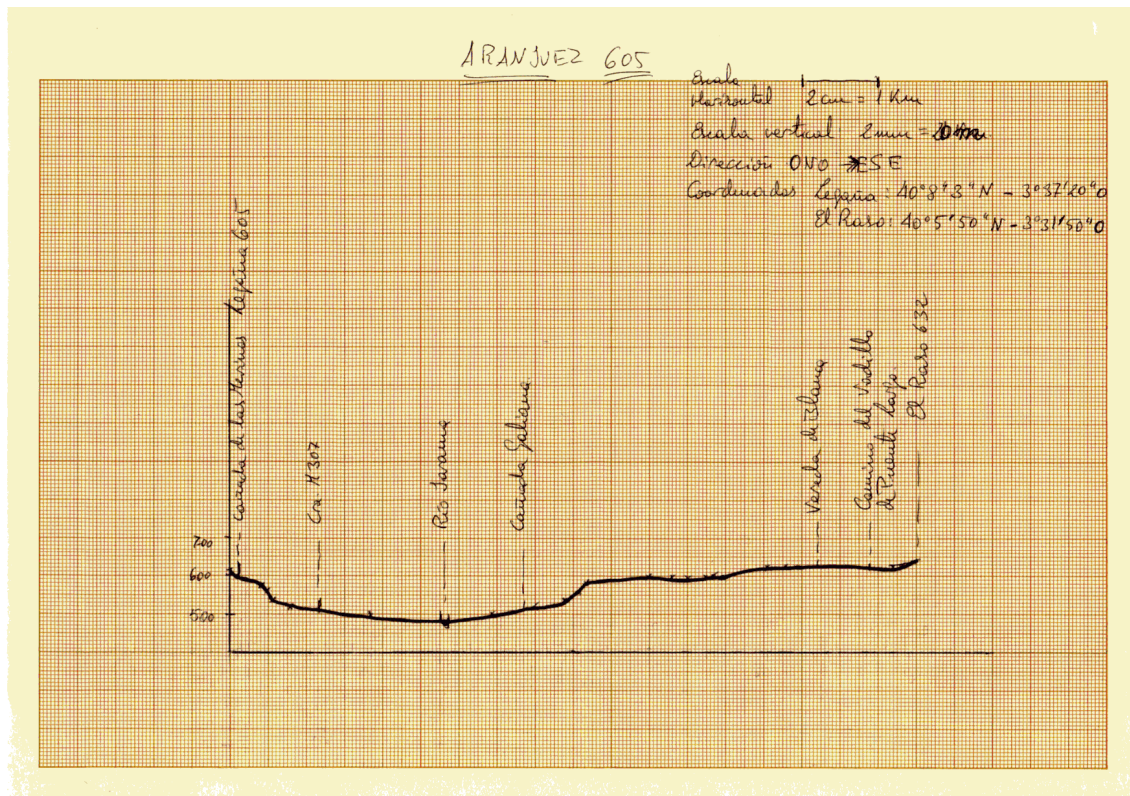 ARANJUEZ 605
Escala
Horizontal 2 cm = 1 Km
Escala vertical 2 mm =
Dirección ONO ESE
Coordenadas Legaña: 40°8'3"N - 3°37'20"O
El Raso: 40°5'50"N - 3°31'50"O
Cañada de las Merinas Legaña 605
Cra M307
Río Jarama
Cañada Galiana
Vereda de Blanca
Camino del Vadillo
de Puente Largo
El Raso 632
700
600
500